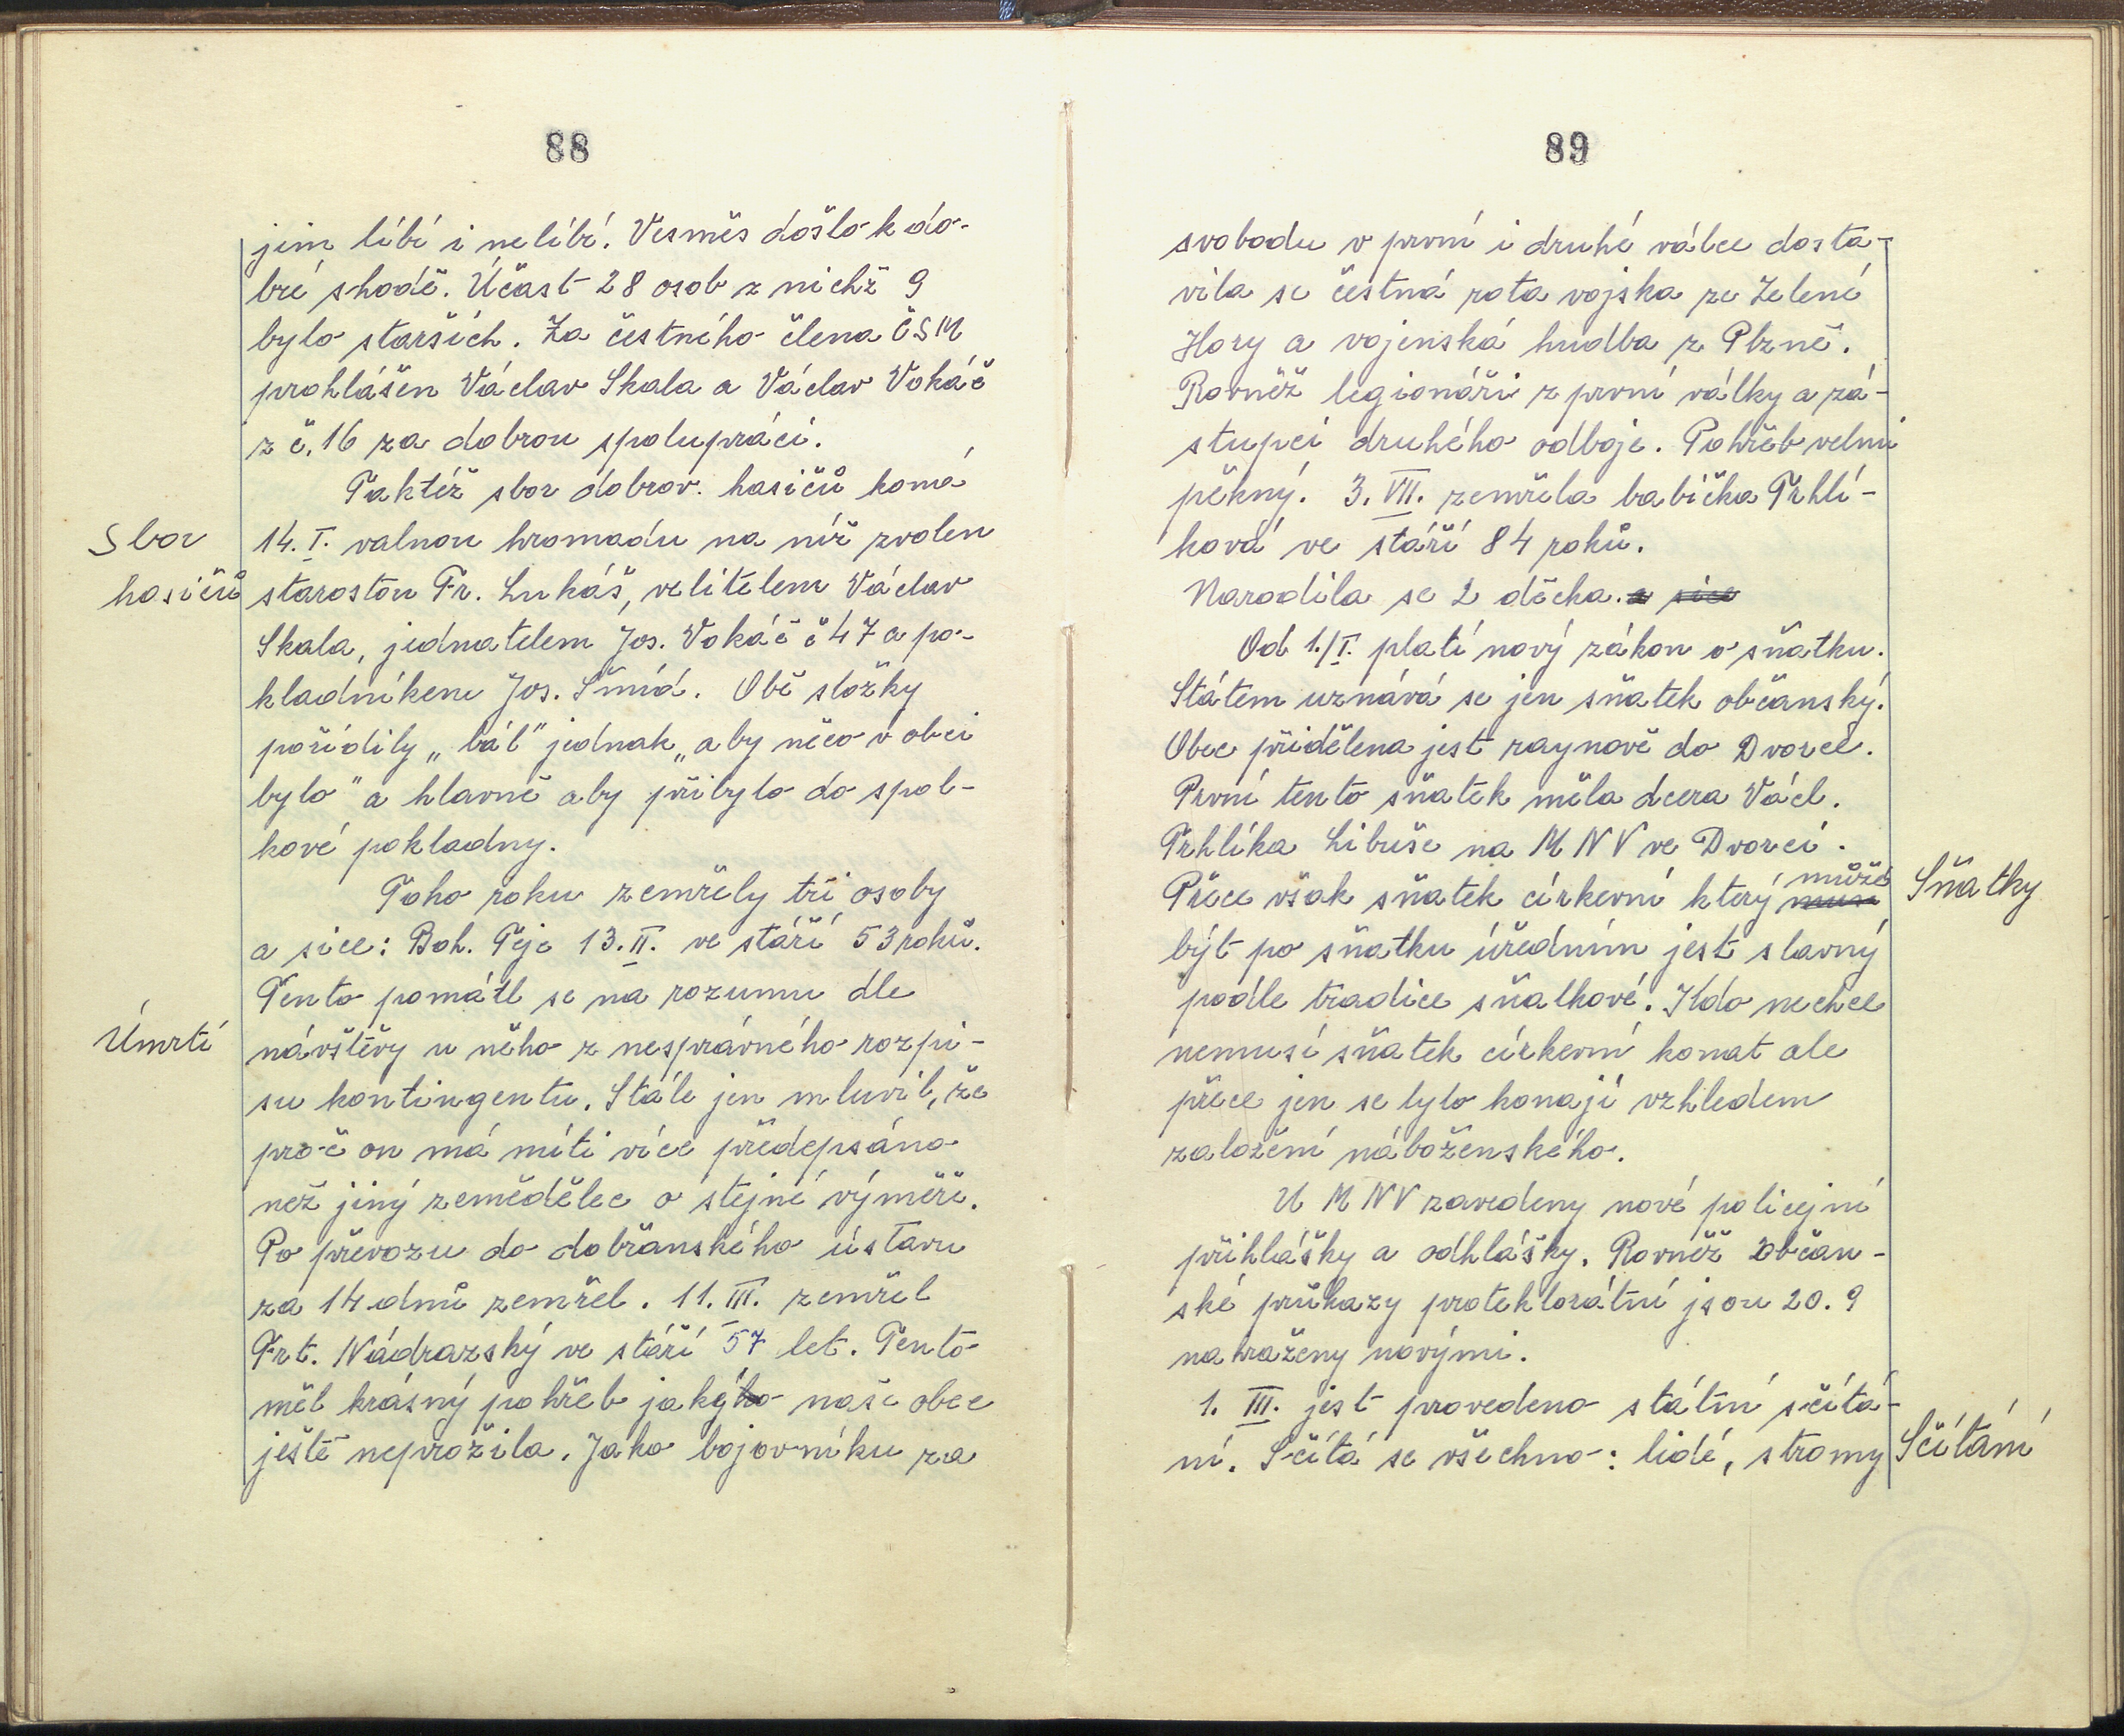 88
jim líbí i nelíbí. Vesměs došlo k do-
bré shodě. Účast 28 osob z nichž 9
bylo starších. Za čestného člena ČSM
prohlášen Václav Skala a Václav Vokáč
z č. 16 za dobrou spolupráci.
Taktéž sbor dobrov. hasičů koná
Sbor
hasičů
14. I. valnou hromadu na níž zvolen
starostou Fr. Lukáš, velitelem Václav
Skala, jednatelem Jos. Vokáč č 47 a po-
kladníkem Jos. Šmíd. Obě složky
pořídily „bál" jednak „aby něco v obci
bylo" a hlavně aby přibylo do spol-
kové pokladny.
Toho roku zemřely tři osoby
a sice: Boh. Teje 13. II. ve stáří 53 roků.
Tento pomátl se na rozumu dle
Úmrtí
návštěvy u něho z nesprávného rozpi-
su kontingentu. Stále jen mluvil, že
proč on má míti více předepsáno
než jiný zemědělec o stejné výměře.
Po převozu do dobřanského ústavu
za 14 dnů zemřel. 11. III. zemřel
Frt. Nádrazský ve stáří 57 let. Tento
měl krásný pohřeb jakýho naše obec
ještě neprožila. Jako bojovníku za
89
svobodu v první i druhé válce dosta-
vila se čestná rota vojska ze Zelené
Hory a vojenská hudba z Plzně.
Rovněž legionáři z první války a zá-
stupci druhého odboje. Pohřeb velmi
pěkný. 3. VII. zemřela babička Trhlí-
ková ve stáří 84 roků.
Narodila se 2 děcka. a sice
Od 1./I. platí nový zákon o sňatku.
Státem uznává se jen sňatek občanský.
Obec přidělena jest raynově do Dvorce.
První tento sňatek měla dcera Václ.
Trhlíka Libuše na MNV ve Dvorci.
Přece však sňatek církevní který musí můžé
Sňatky
být po sňatku úředním jest slavný
podle tradice sňatkové. Kdo nechce
nemusí sňatek církevní konat ale
přece jen se tyto konají vzhledem
založení náboženského.
U MNV zavedeny nové policejní
přihlášky a odhlášky. Rovněž občan-
ské průkazy protektorátní jsou 20. 9
nahraženy novými.
1. III. jest provedeno státní sčítá-
ní. Sčítá se všechno: lidé, stromy
Sčítání